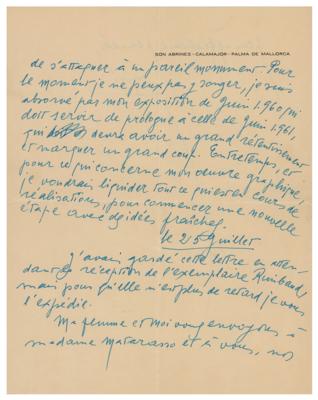 SON ABRINES - CALAMAJOR - PALMA DE MALLORCA
de s'attaquer à un pareil monument. Pour
le moment je ne peux pas y songer, je suis
absorvé par mon exposition de juin 1.960 qui
doit servir de prologue à celle de juin 1.961,
qui devra avoir un grand retentissement
et marquer un grand coup. Entretemps, et
pour ce qui concerne mon oeuvre graphique,
je voudrais liquider tout ce qui est en cours de
réalisations, pour commencer une nouvelle
étape avec des idées fraîches.
le 25 Juillet
J'avais gardé cette lettre en atten-
dant la réception de l'exemplaire Rimbaud,
mais pour qu'elle n'est plus de retard je vous
l'expédie.
Ma femme et moi vous envoyons à
madame Matarasso et à vous, nos